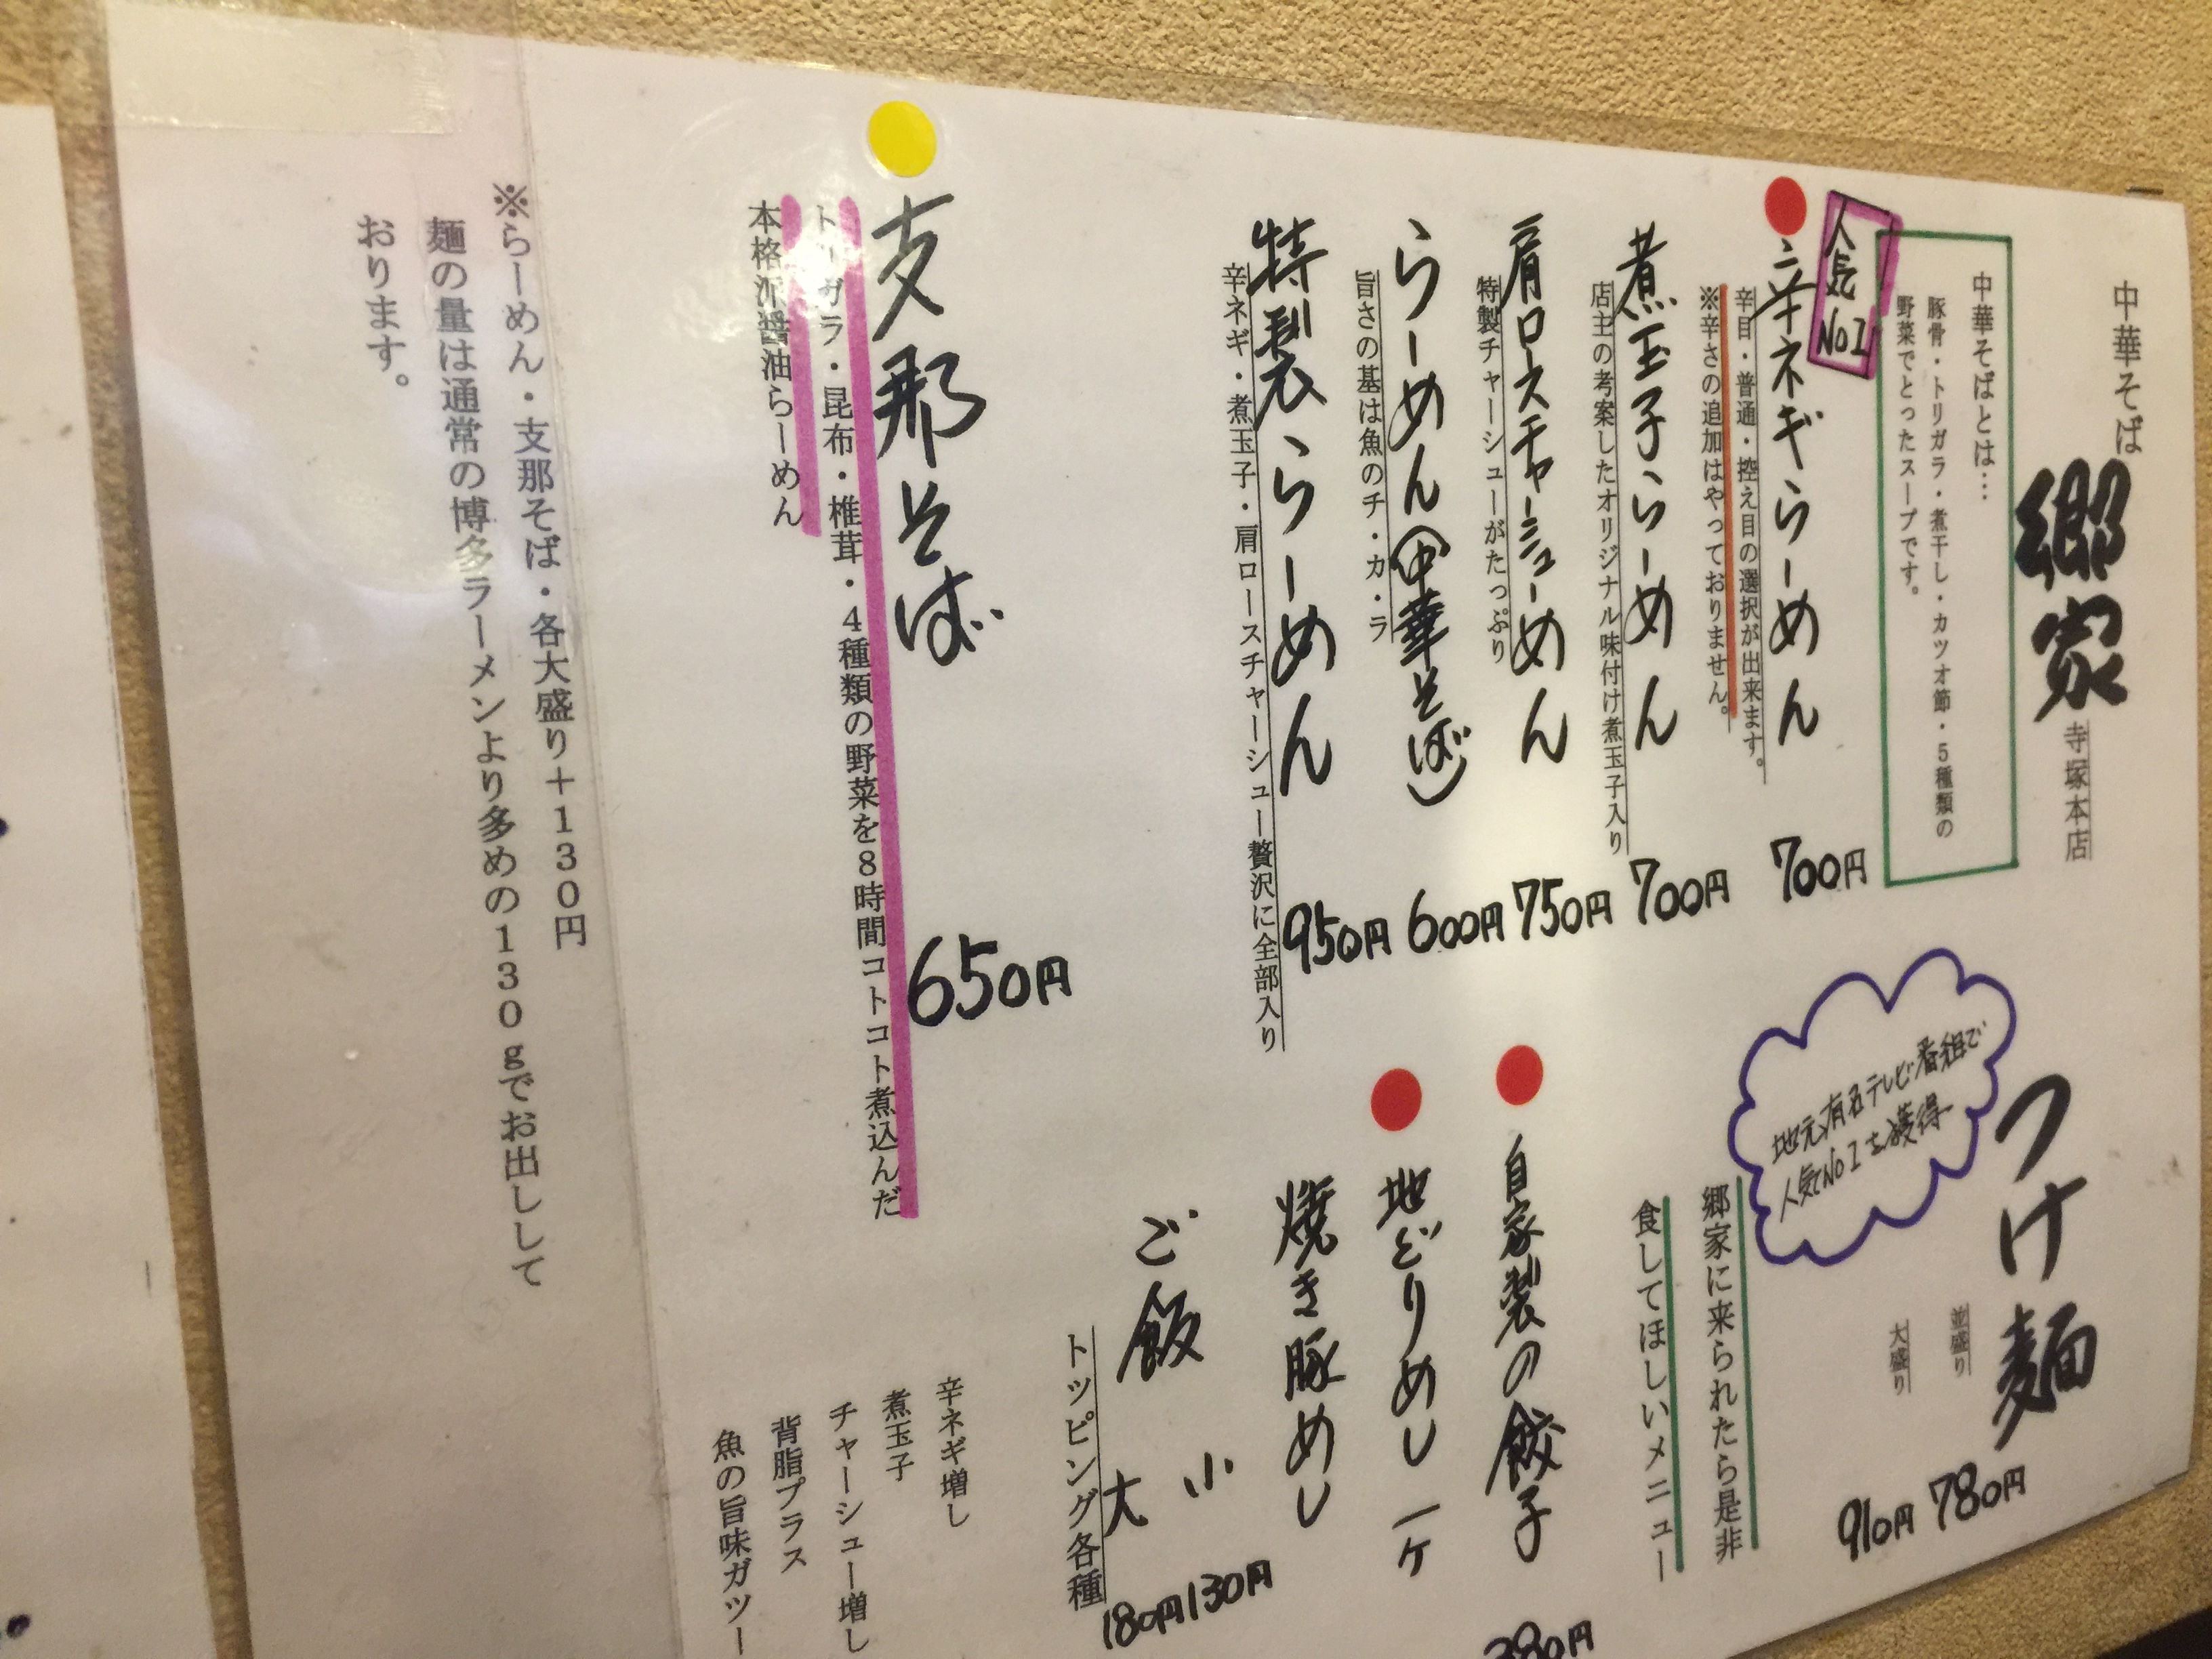 中華そば 郷家 寺塚本店
中華そばとは…
豚骨・トリガラ・煮干し・カツオ節・5種類の
野菜でとったスープです。
人気No1
辛ネギらーめん 700円
辛目・普通・控え目の選択が出来ます。
※辛さの追加はやっておりません。
煮玉子らーめん 700円
店主の考案したオリジナル味付け煮玉子入り
肩ロースチャーシューめん 750円
特製チャーシューがたっぷり
らーめん(中華そば) 600円
旨さの基は魚のチ・カ・ラ
特製らーめん 950円
辛ネギ・煮玉子・肩ロースチャーシュー贅沢に全部入り
支那そば 650円
トリガラ・昆布・椎茸・4種類の野菜を8時間コトコト煮込んだ
本格派醤油らーめん
※らーめん・支那そば・各大盛り+130円
麺の量は通常の博多ラーメンより多めの130gでお出しして
おります。
つけ麺
並盛り 780円
大盛り 910円
地元有名テレビ番組で
人気No1を獲得
郷家に来られたら是非
食してほしいメニュー
自家製の餃子 380円
地どりめし 一ケ
焼き豚めし
ご飯 小 130円
大 180円
トッピング各種
辛ネギ増し
煮玉子
チャーシュー増し
背脂プラス
魚の旨味ガツー